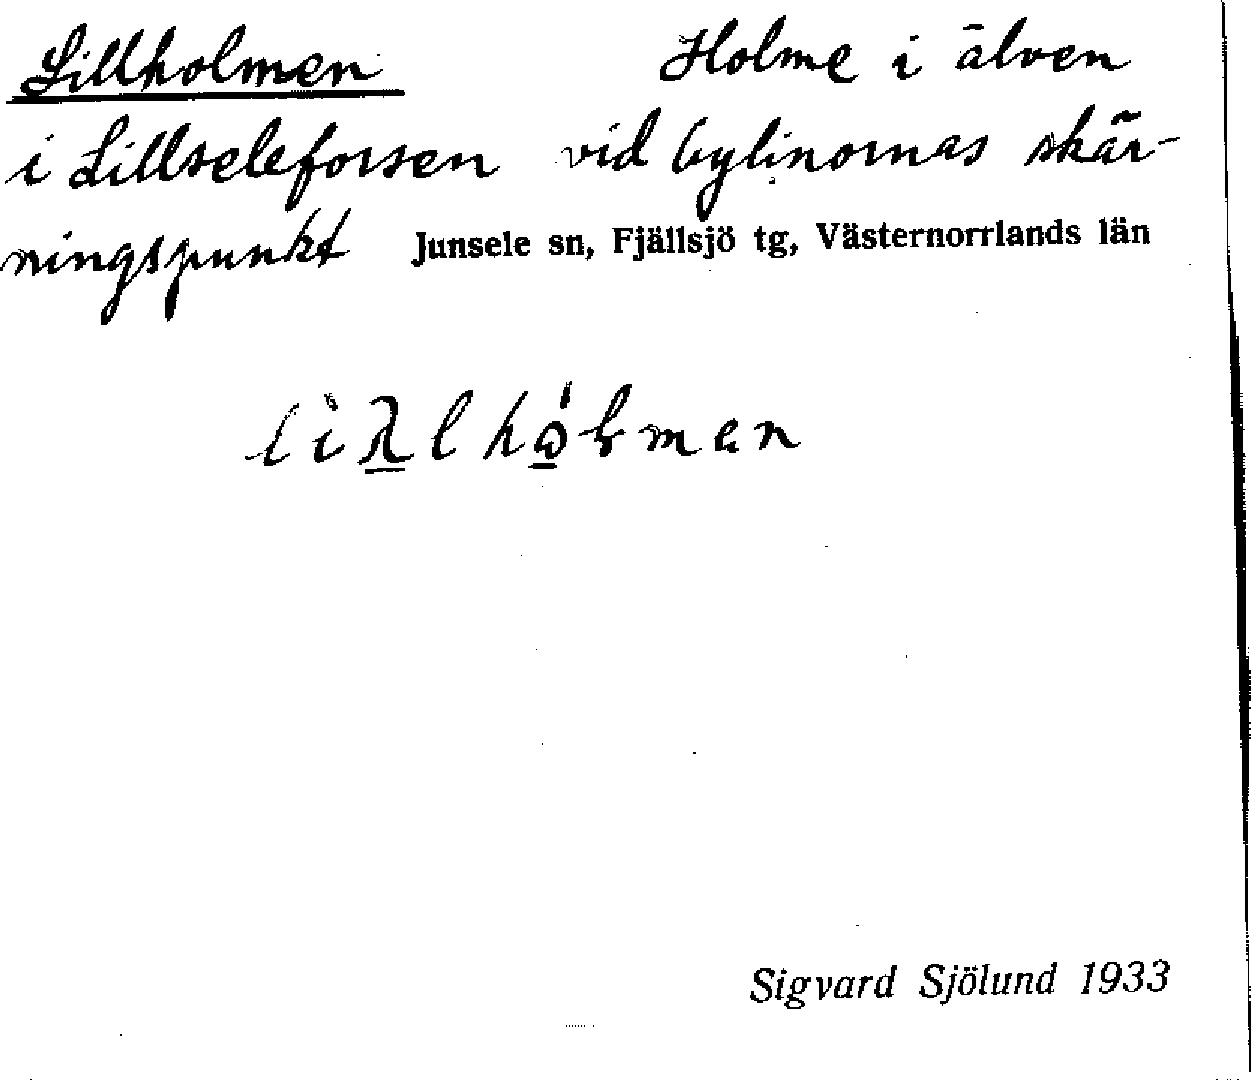 Lillholmen Holme i älven
i Lillseleforsen vid bylinornas skär-
ningspunkt Junsele sn, Fjällsjö tg, Västernorrlands län
Sigvard Sjölund 1933